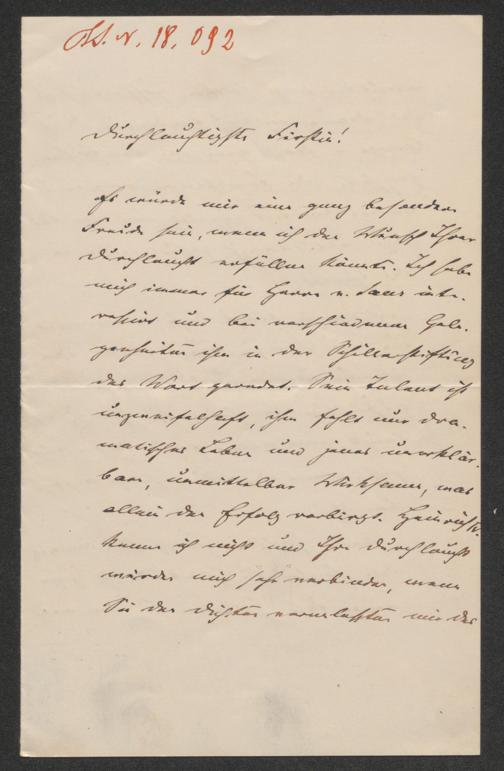 H.I.N. 18.092
Durchlauchtigste Fürstin!
Es würde mir eine ganz besondere
Freude sein, wenn ich den Wunsch Ihrer
Durchlaucht erfüllen könnte. Ich habe
mich immer für Herrn v. Saar inte-
ressirt und bei verschiedenen Gele-
genheiten ihm in der Schillerstiftung
das Wort geredet. Sein Talent ist
unzweifelhaft, ihm fehlt nur dra-
matisches Leben und jenes unerklär-
bare, unmittelbar Wirksame, was
allein den Erfolg verbürgt. Heinrich IV.
kenne ich nicht und Ihre Durchlaucht
würden mich sehr verbinden, wenn
Sie den Dichter veranlaßten mir das